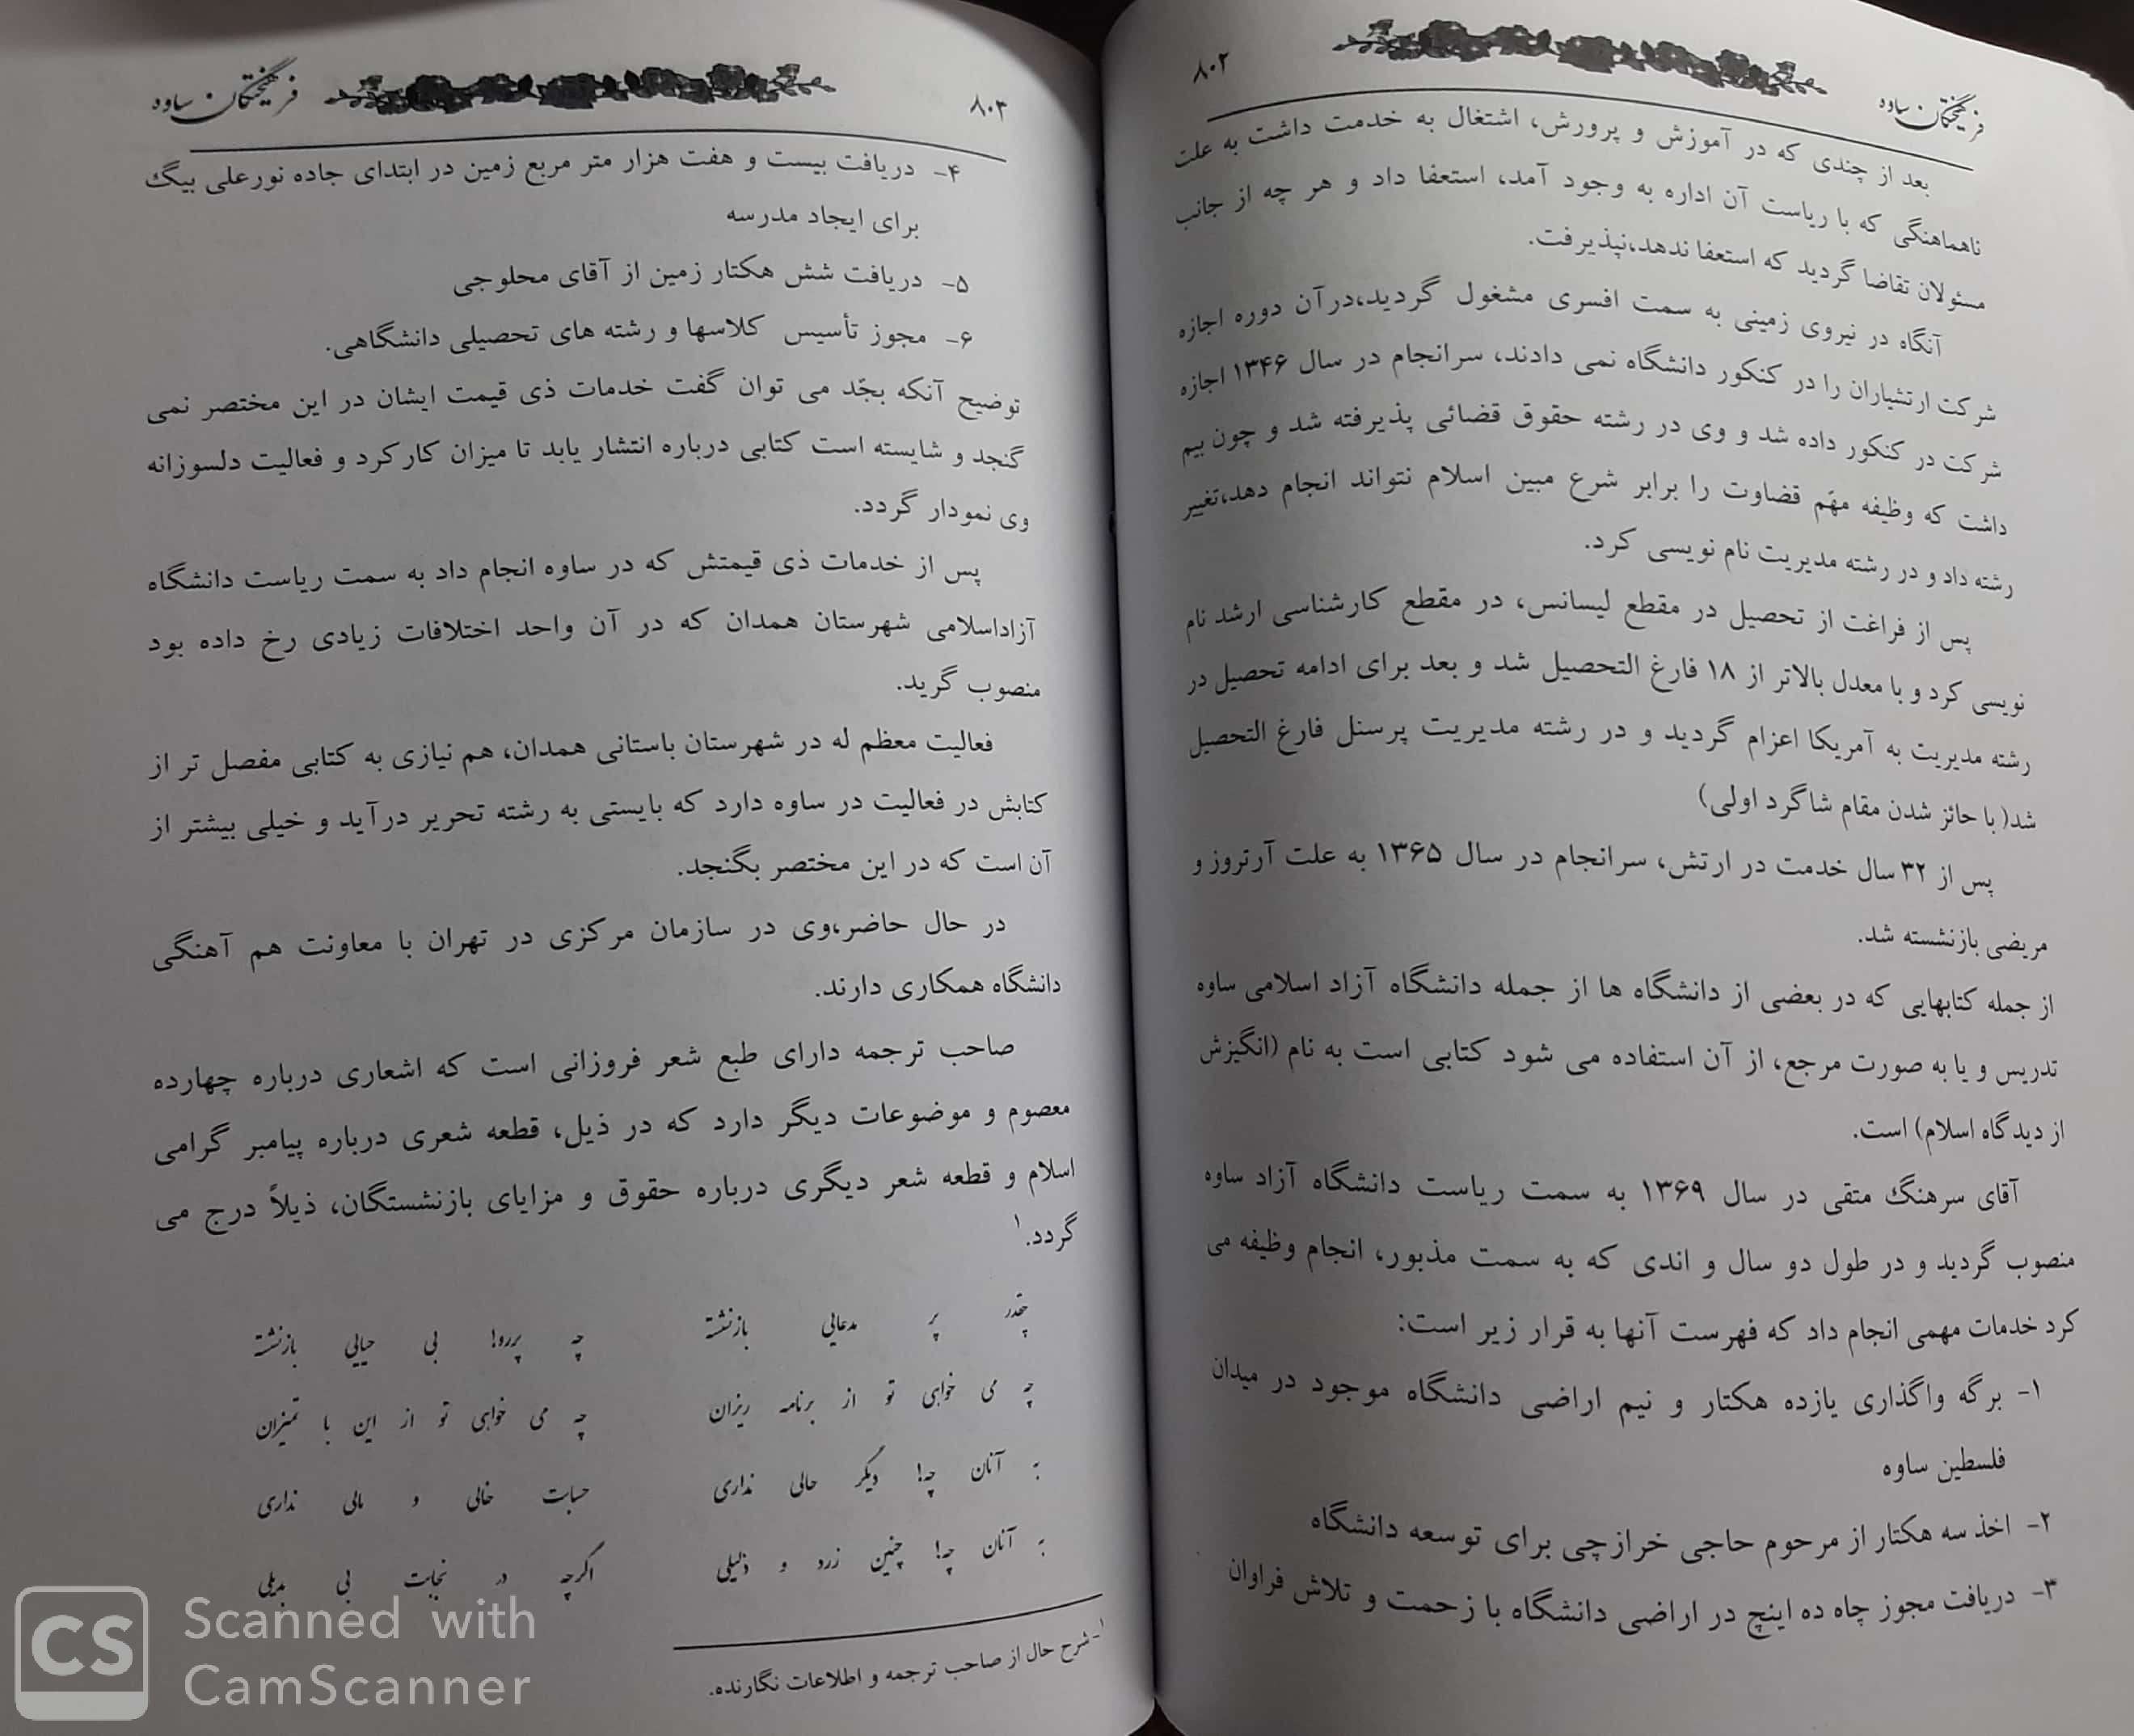 فرهیختگان ساوه
۸۰۲
بعد از چندی که در آموزش و پرورش، اشتغال به خدمت داشت به علت
ناهماهنگی که با ریاست آن اداره به وجود آمد، استعفا داد و هر چه از جانب
مسئولان تقاضا گردید که استعفا ندهد،نپذیرفت.
آنگاه در نیروی زمینی به سمت افسری مشغول گردید،درآن دوره اجازه
شرکت ارتشیاران را در کنکور دانشگاه نمی دادند، سرانجام در سال ۱۳۴۶ اجازه
شرکت در کنکور داده شد و وی در رشته حقوق قضائی پذیرفته شد و چون بیم
داشت که وظیفه مهّم قضاوت را برابر شرع مبین اسلام نتواند انجام دهد،تغییر
رشته داد و در رشته مدیریت نام نویسی کرد.
پس از فراغت از تحصیل در مقطع لیسانس، در مقطع کارشناسی ارشد نام
نویسی کرد و با معدل بالاتر از ۱۸ فارغ التحصیل شد و بعد برای ادامه تحصیل در
رشته مدیریت به آمریکا اعزام گردید و در رشته مدیریت پرسنل فارغ التحصیل
شد( با حائز شدن مقام شاگرد اولی)
پس از ۳۲ سال خدمت در ارتش، سرانجام در سال ۱۳۶۵ به علت آرتروز و
مریضی بازنشسته شد.
از جمله کتابهایی که در بعضی از دانشگاه ها از جمله دانشگاه آزاد اسلامی ساوه
تدریس و یا به صورت مرجع، از آن استفاده می شود کتابی است به نام (انگیزش
از دیدگاه اسلام) است.
آقای سرهنگ متقی در سال ۱۳۶۹ به سمت ریاست دانشگاه آزاد ساوه
منصوب گردید و در طول دو سال و اندی که به سمت مذبور، انجام وظیفه می
کرد خدمات مهمی انجام داد که فهرست آنها به قرار زیر است:
۱- برگه واگذاری یازده هکتار و نیم اراضی دانشگاه موجود در میدان
فلسطین ساوه
۲- اخذ سه هکتار از مرحوم حاجی خرازچی برای توسعه دانشگاه
۳- دریافت مجوز چاه ده اینچ در اراضی دانشگاه با زحمت و تلاش فراوان
۸۰۳
فرهیختگان ساوه
۴- دریافت بیست و هفت هزار متر مربع زمین در ابتدای جاده نورعلی بیگ
برای ایجاد مدرسه
۵- دریافت شش هکتار زمین از آقای محلوجی
۶- مجوز تأسیس کلاسها و رشته های تحصیلی دانشگاهی.
توضیح آنکه بجّد می توان گفت خدمات ذی قیمت ایشان در این مختصر نمی
گنجد و شایسته است کتابی درباره انتشار یابد تا میزان کارکرد و فعالیت دلسوزانه
وی نمودار گردد.
پس از خدمات ذی قیمتش که در ساوه انجام داد به سمت ریاست دانشگاه
آزاداسلامی شهرستان همدان که در آن واحد اختلافات زیادی رخ داده بود
منصوب گرید.
فعالیت معظم له در شهرستان باستانی همدان، هم نیازی به کتابی مفصل تر از
کتابش در فعالیت در ساوه دارد که بایستی به رشته تحریر درآید و خیلی بیشتر از
آن است که در این مختصر بگنجد.
در حال حاضر،وی در سازمان مرکزی در تهران با معاونت هم آهنگی
دانشگاه همکاری دارند.
صاحب ترجمه دارای طبع شعر فروزانی است که اشعاری درباره چهارده
معصوم و موضوعات دیگر دارد که در ذیل، قطعه شعری درباره پیامبر گرامی
اسلام و قطعه شعر دیگری درباره حقوق و مزایای بازنشستگان، ذیلاً درج می
گردد.۱
چقدر پر مدعایی بازنشسته چه پررو! بی حیایی بازنشسته
چه می خواهی تو از برنامه ریزان چه می خواهی تو از این با تمیزان
به آنان چه! دیگر حالی نداری حسابت خالی و مالی نداری
به آنان چه! چنین زرد و ذلیلی اگرچه در نجابت بی بدیلی
۱-شرح حال از صاحب ترجمه و اطلاعات نگارنده.
CS Scanned with
CamScanner